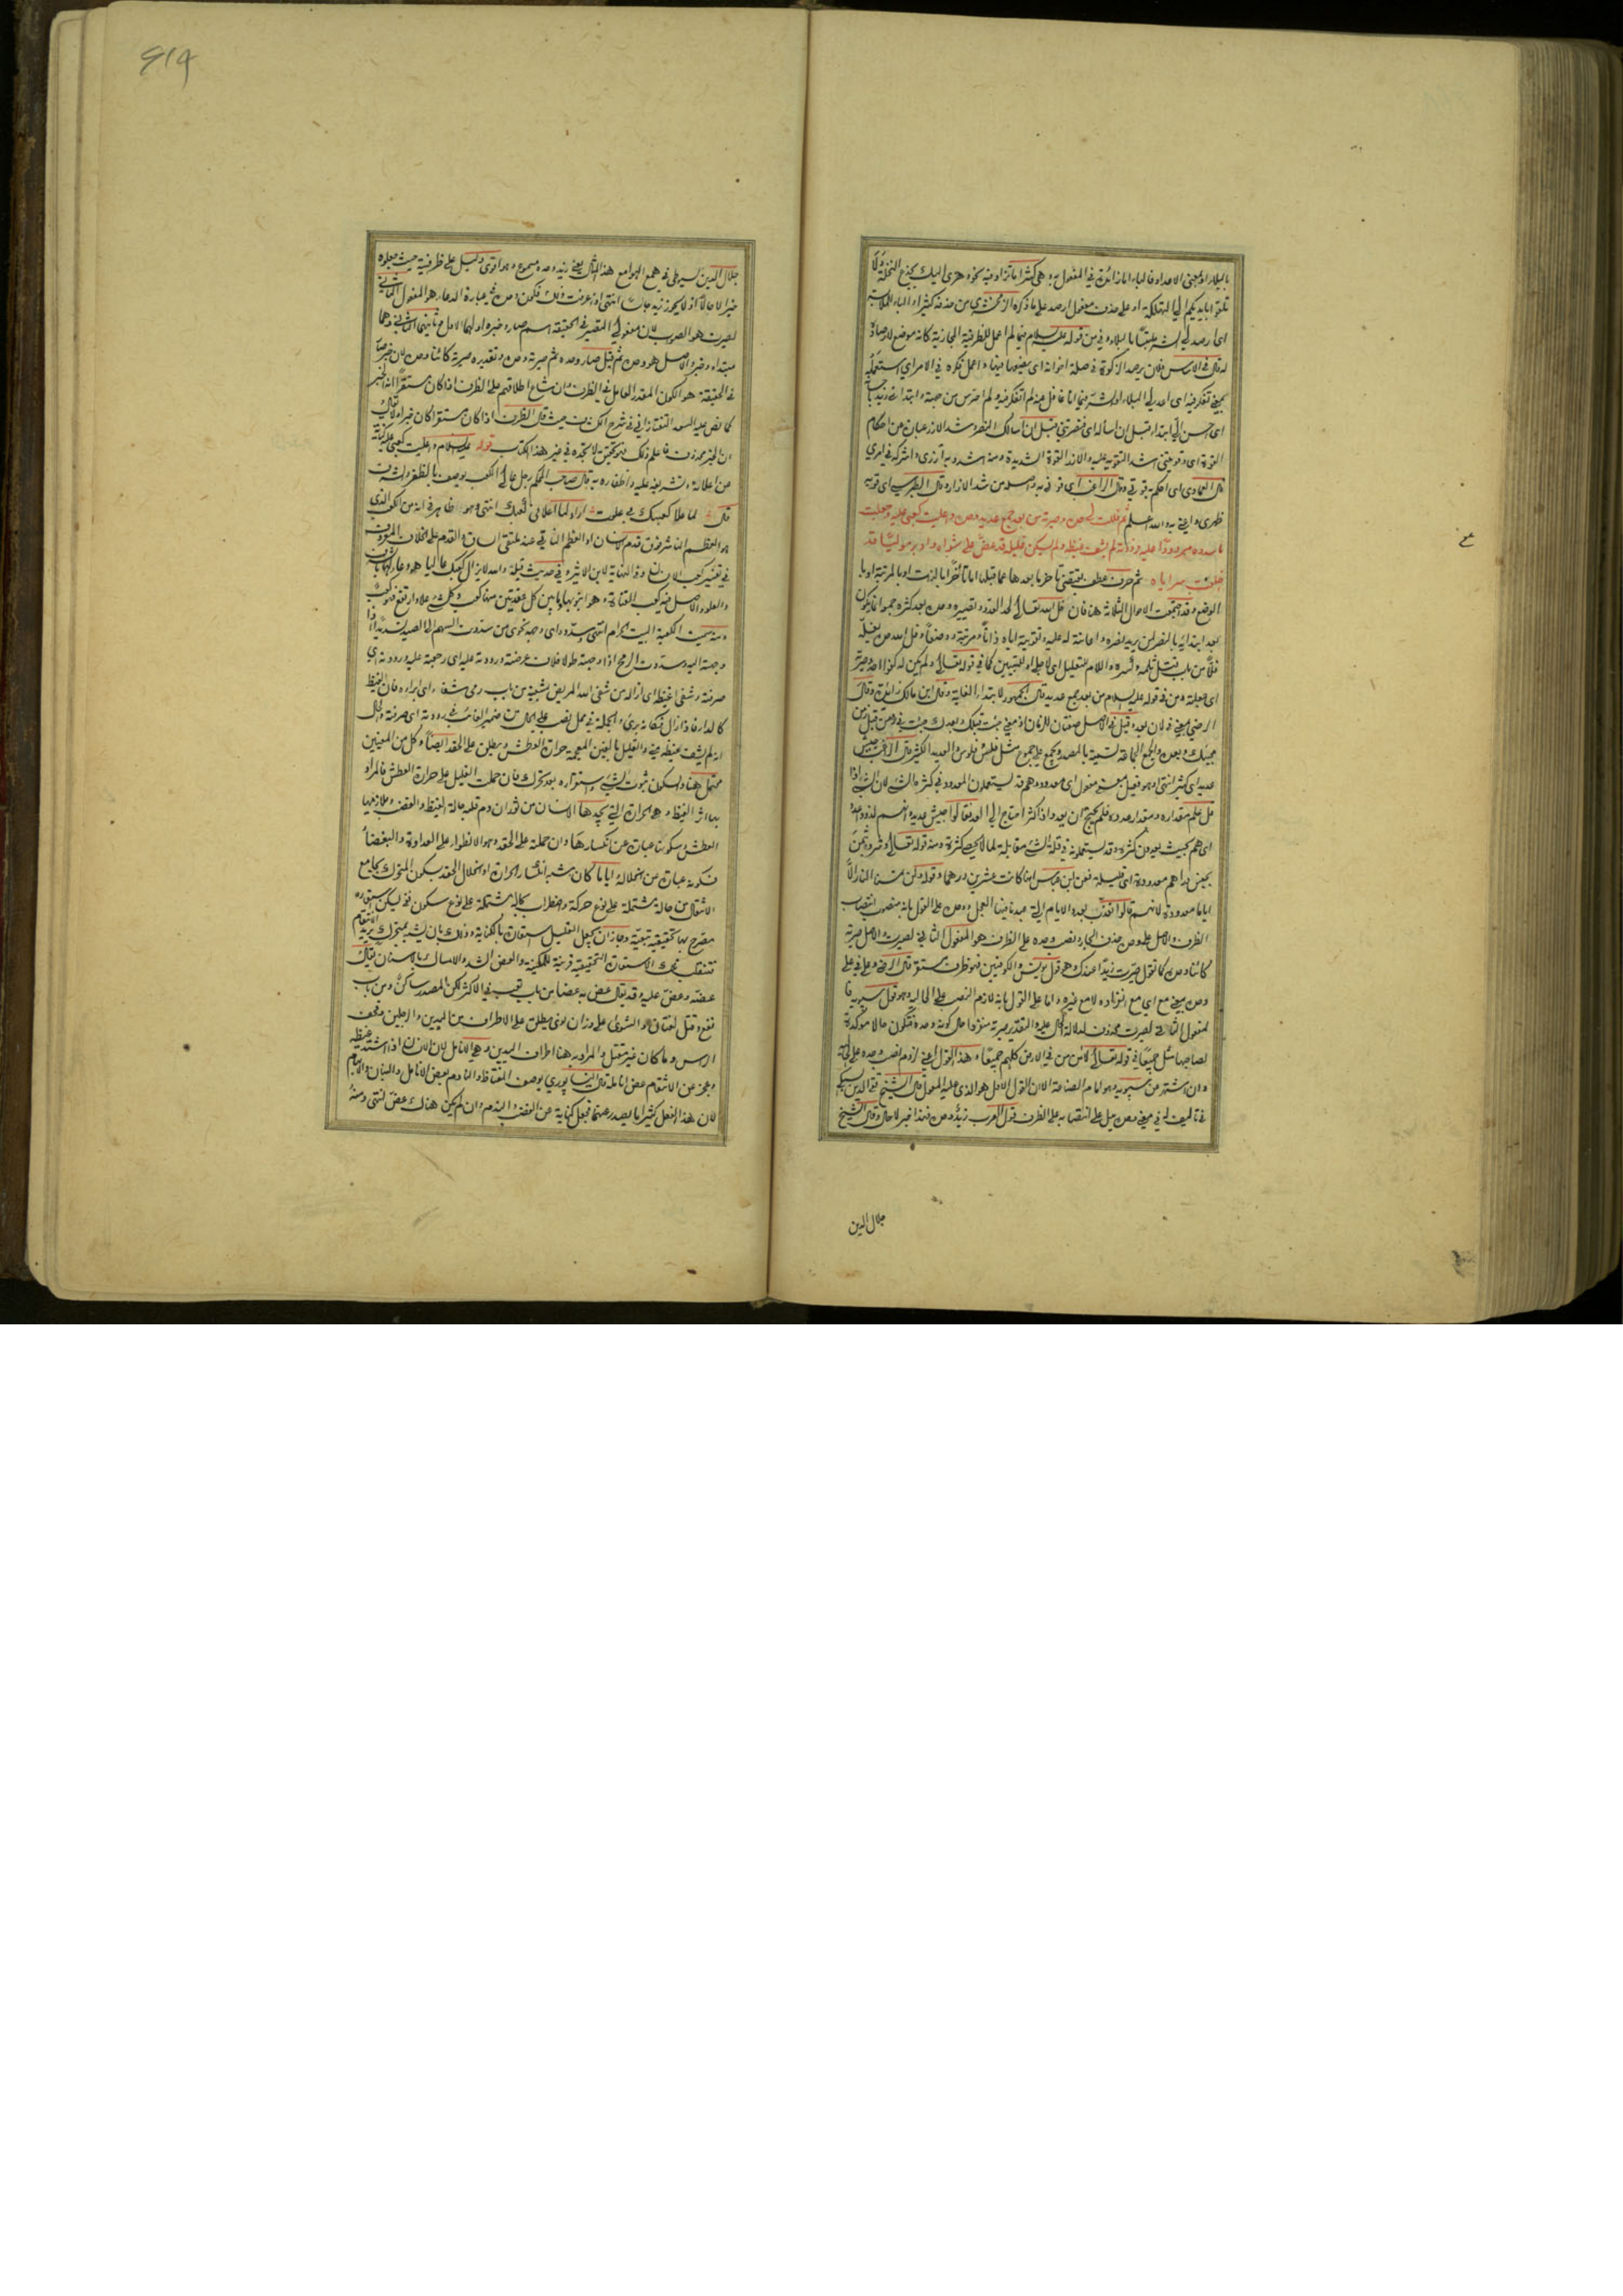 بالبلاء او بمعنى الاعداد فالباء اما زائدة في المفعول به وهي كثيرا ما تزاد فيه نحو وهزي اليك بجذع النخلة ولا
تلقوا بايديكم الى التهلكة او على حذف مفعول ارصد على ما ذكره الزمخشري من حذفه كثيرا والباء للملابسة
اى ارصد لي الشر ملتبسا بالبلاء وفي من قوله عليه السلام فيما لم اعمل للظرفية المجازية كانه موضع لارصاده
له قال في الاساس فلان يرصد الزكوة في صلة اخوانه اى يضعها فيها واعمل فكره في الامر اي استعمله
اى احسن الي ابتداء قبل ان اساله اى فنصرتني قبل ان اسالك النصر وشد الازر عبارة عن احكام
القوة اى وقويتني اشد التقوية عليه والازر القوة الشديدة ومنه اشدد به ازري واشركه في امري
قال العمادي اى احكم به قوتي وقال الراغب اى قوني به واصله من شد الازار وقال الطبرسي اى قو به
ظهري واعني به والله اعلم ثم فللت لي حده وصيرته من بعد جمع عديد وحده واعليت كعبي عليه وجعلت
ما سدده مردودا عليه ورددته لم يشف غيظه ولم يسكن غليله قد عض على شواه وادبر موليا قد
اخلفت سراياه ثم حرف عطف يقتضي تاخر ما بعدها عما قبلها اما تاخرا بالذات او بالمرتبة او با
الوضع وقد اجتمعت الاحوال الثلاثة هنا فان
بعد ابتدائه بالنصر لمن يريد نصره واعانته له عليه وتقويته اياه ذاتا ومرتبة ووضعا وفل الحد من يفله
فلا من باب قتل ثلمه وكسره واللام للتعليل اى لاجلي او للتبيين كما في قوله تعالى ولم يكن له كفوا احد وصيرته
اى جعلته ومن في قوله عليه السلام من بعد جمع عديد قال الجمهور لابتداء الغاية وقال ابن مالك زائدة وقال
الرضي بمعنى في لان بعد وقبل في الاصل صفتان للزمان اذ معنى جئت قبلك وبعدك جئت في زمن قبل زمن
مجيئك وبعده والجمع الجماعة تسمية بالمصدر ويجمع على جموع مثل فلس وفلوس والعديد الكثير قال الراغب جيش
عديد اى كثير انتهى وهو فعيل بمعنى مفعول اى معدود وهم قد يستعملون المعدود في كثرة الشيء لان الشيء اذا
قل علم مقداره ومقدار عدده فلم يحتج ان يعد واذا كثر احتاج الى العد فقالوا جيش عديد وانهم لذوو عدد
اى هم بحيث يعدون كثرة وقد يستعملونه في قلة الشيء مقابلة لما لا يحصى كثرة ومنه قوله تعالى وشروه بثمن
بخس دراهم معدودة اى قليلة فعن ابن عباس انها كانت عشرين درهما وقوله لن تمسنا النار الا
اياما معدودة لانهم قالوا نعذب بعدد الايام التي عبدنا فيها العجل ووحده على القول بانه منصوب انتصاب
الظرف والاصل على وحده حذف الجار ونصب وحده على الظرف هو المفعول الثاني لصيرت والاصل صيرته
كائنا وحده كما تقول صيرت زيدا عندك وهو قول يونس والكوفيين فهو ظرف مستقر
وحده بمعنى مع اي مع انفراده لا مع غيره واما على القول بانه لازم النصب على الحالية وهو قول سيبويه فا
لمفعول الثاني لصيرت محذوف لدلالة الحال عليه والتقدير صيرته منفردا حال كونه وحده فتكون حالا موكدة
لصاحبها مثل جميعا في قوله تعالى لآمن من في الارض كلهم جميعا وهذا القول اعني لزوم نصب وحده على الحالية
وان اشتهر من سيبويه وهو امام الصناعة الا ان القول الاول هو الذي عليه المعول قال الشيخ تقي الدين السبكي
في تاليف له في معنى وحده يدل على انتصابه على الظرف قول العرب زيد وحده فهذا خبر لا حال وقال الشيخ
جلال الدين
جلال الدين السيوطي في همع الهوامع هذا المثال يعني زيد وحده مسموع وهو اقوى دليل على ظرفيته حيث جعلوه
خبرا لا حالا اذ لا يجوز زيد جالسا انتهى اذا عرفت ذلك فكون وحده في عبارة الدعاء هو المفعول الثاني
لصيرت هو الصواب لان مفعولي التصيير في الحقيقة اسم صار وخبره اولهما الاول وثانيهما الثاني وهما
مبتداء وخبر والاصل هو وحده ثم قيل صار وحده ثم صيرته وحده وتقديره صيرته كائنا وحده لان خبر صار
في الحقيقة هو الكون المقدر العامل في الظرف وان شاع اطلاقهم على الظرف اذا كان مستقرا انه الخبر
كما نص عليه السعد التفتازاني في شرح الكشاف حيث قال الظرف اذا كان مستقرا كان خبرا ولا يقال
ان الخبر محذوف فاعلم ذلك فهو تحقيق لا تجده في غير هذا الكتاب قوله عليه السلام واعليت كعبي عليه كناية
عن اعلائه وتشريفه عليه واظفاره به قال صاحب المحكم رجل عالي الكعب يوصف بالظفر والشرف
قال لما علا كعبك بي عليت اراد لما اعلاني كعبك انتهى وهو ظاهر في انه من الكعب الذي
هو العظم الناشز فوق قدم الانسان او العظم الناتي عند ملتقى الساق والقدم على الخلاف المعروف
في تفسير كعب الانسان وفي النهاية لابن الاثير وفي حديث قيلة والله لا يزال كعبك عاليا هو دعاء لها بالشرف
والعلو والاصل فيه كعب القناة وهو انبوبها وما بين كل عقدتين منها كعب وكل شيء علا وارتفع فهو كعب
ومنه سميت الكعبة البيت الحرام انتهى وسدده اى وجهه نحوي من سددت السهم الى الصيد تسديدا اذا
وجهته اليه وسددت الرمح اذا وجهته طولا خلاف عرضته ورددته عليه اى رجعته عليه ورددته اى
صرفته وشفى الغيظ اى ازاله من شفى الله المريض يشفيه من باب رمى شفاء اى ابراه فان الغيظ
كالداء فاذا زال فكانه برئ والجملة في محل نصب على الحال من ضمير الغائب في رددته اى صرفته والحال
انه لم يشف غيظه مني والغليل بالغين المعجمة حرارة العطش ويطلق على الحقد ايضا وكل من المعنيين
محتمل هنا والسكون ثبوت الشيء واستقراره بعد تحرك فان حملت الغليل على حرارة العطش فالمراد
بها اثر الغيظ وهو الحرارة التي يجدها الانسان من ثوران دم قلبه حالة الغيظ والغضب وملازمها
العطش وسكونها عبارة عن انكسارها وان حملته على الحقد وهو الانطواء على العداوة والبغضاء
فسكونه عبارة عن انحلاله وايا ما كان شبه انكسار الحرارة او انحلال الحقد بسكون المتحرك بجامع
الانتقال من حالة مشتملة على نوع حركة واضطراب الى حالة مشتملة على نوع سكون ففي ليسكن استعارة
مصرح بها تحقيقية تبعية وجاز ان يجعل الغليل استعارة بالكناية وذلك بان يشبه بمتحرك يريد الانتقام
الاستعارة التحقيقية قرينة للمكنية والعض الشد والامساك بالاسنان يقال
عضه وعض عليه وقد يقال عض به عضا من باب تعب في الاكثر لكن المصدر ساكن ومن باب
نفع وقتل لغتان والشوى على وزان نوى يطلق على الاطراف من اليدين والرجلين وقحف
الراس وما كان غير مقتل والمراد به هنا اطراف اليدين وهي الانامل لان الانسان اذا اشتد غيظه
وعجز عن الانتقام عض انامله قال النيسابوري يوصف المغتاظ والنادم بعض الانامل والبنان والابهام
لان هذا الفعل كثيرا ما يصدر عنهما فجعل كناية عن الغضب والندم وان لم يكن هناك عض انتهى ومنه